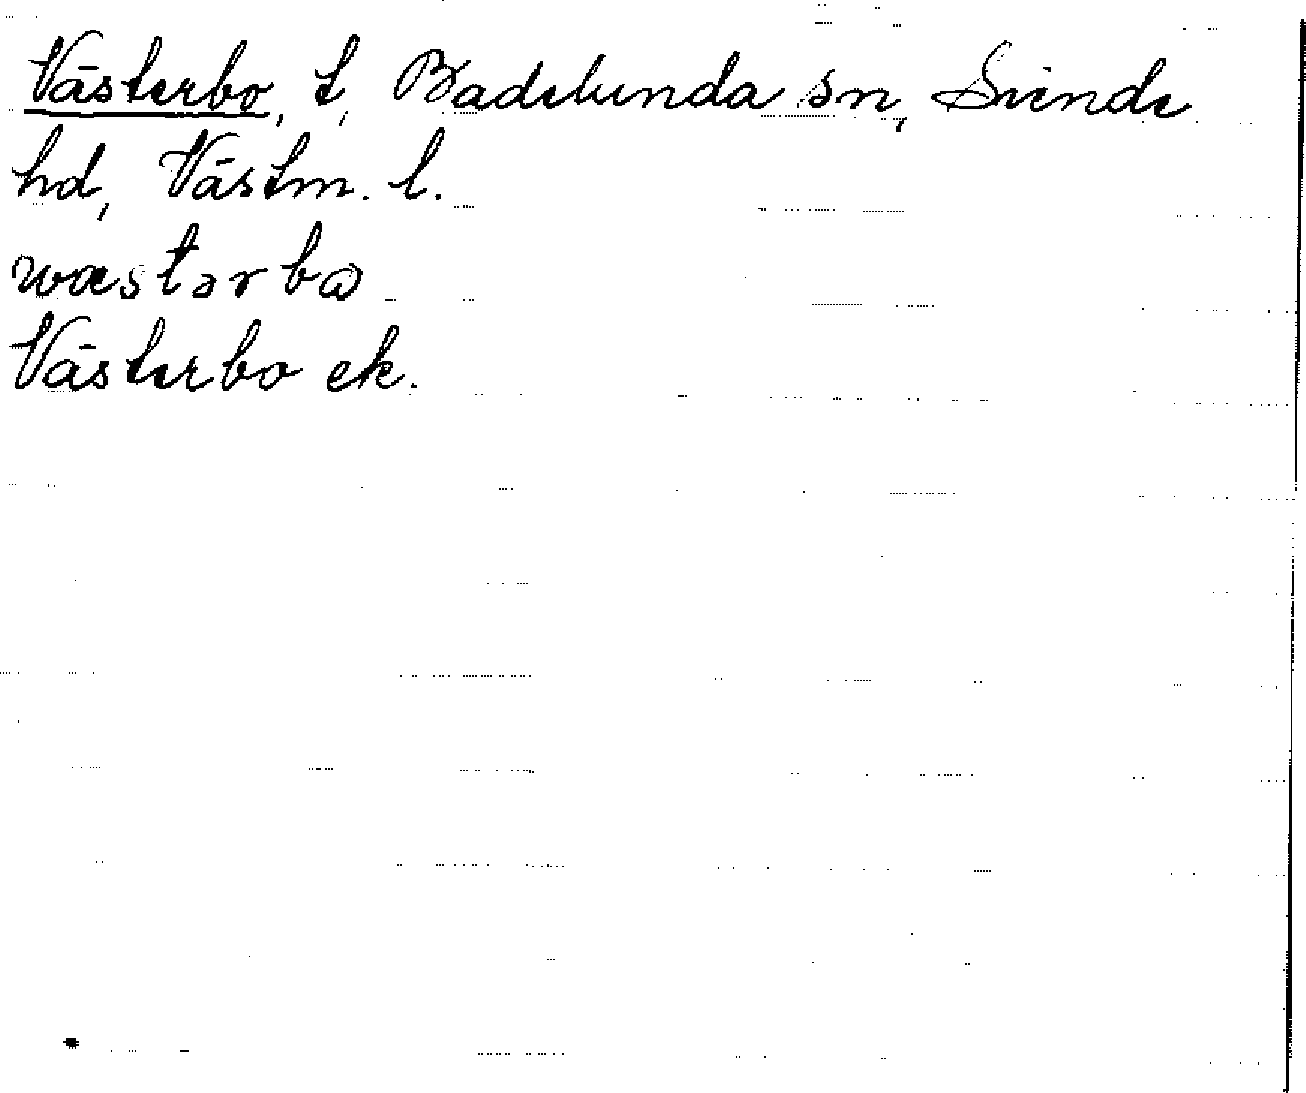 Västerbo, t, Badelunda sn, Siende
hd, Västm. l.
wæstərbω
Västerbo ek.